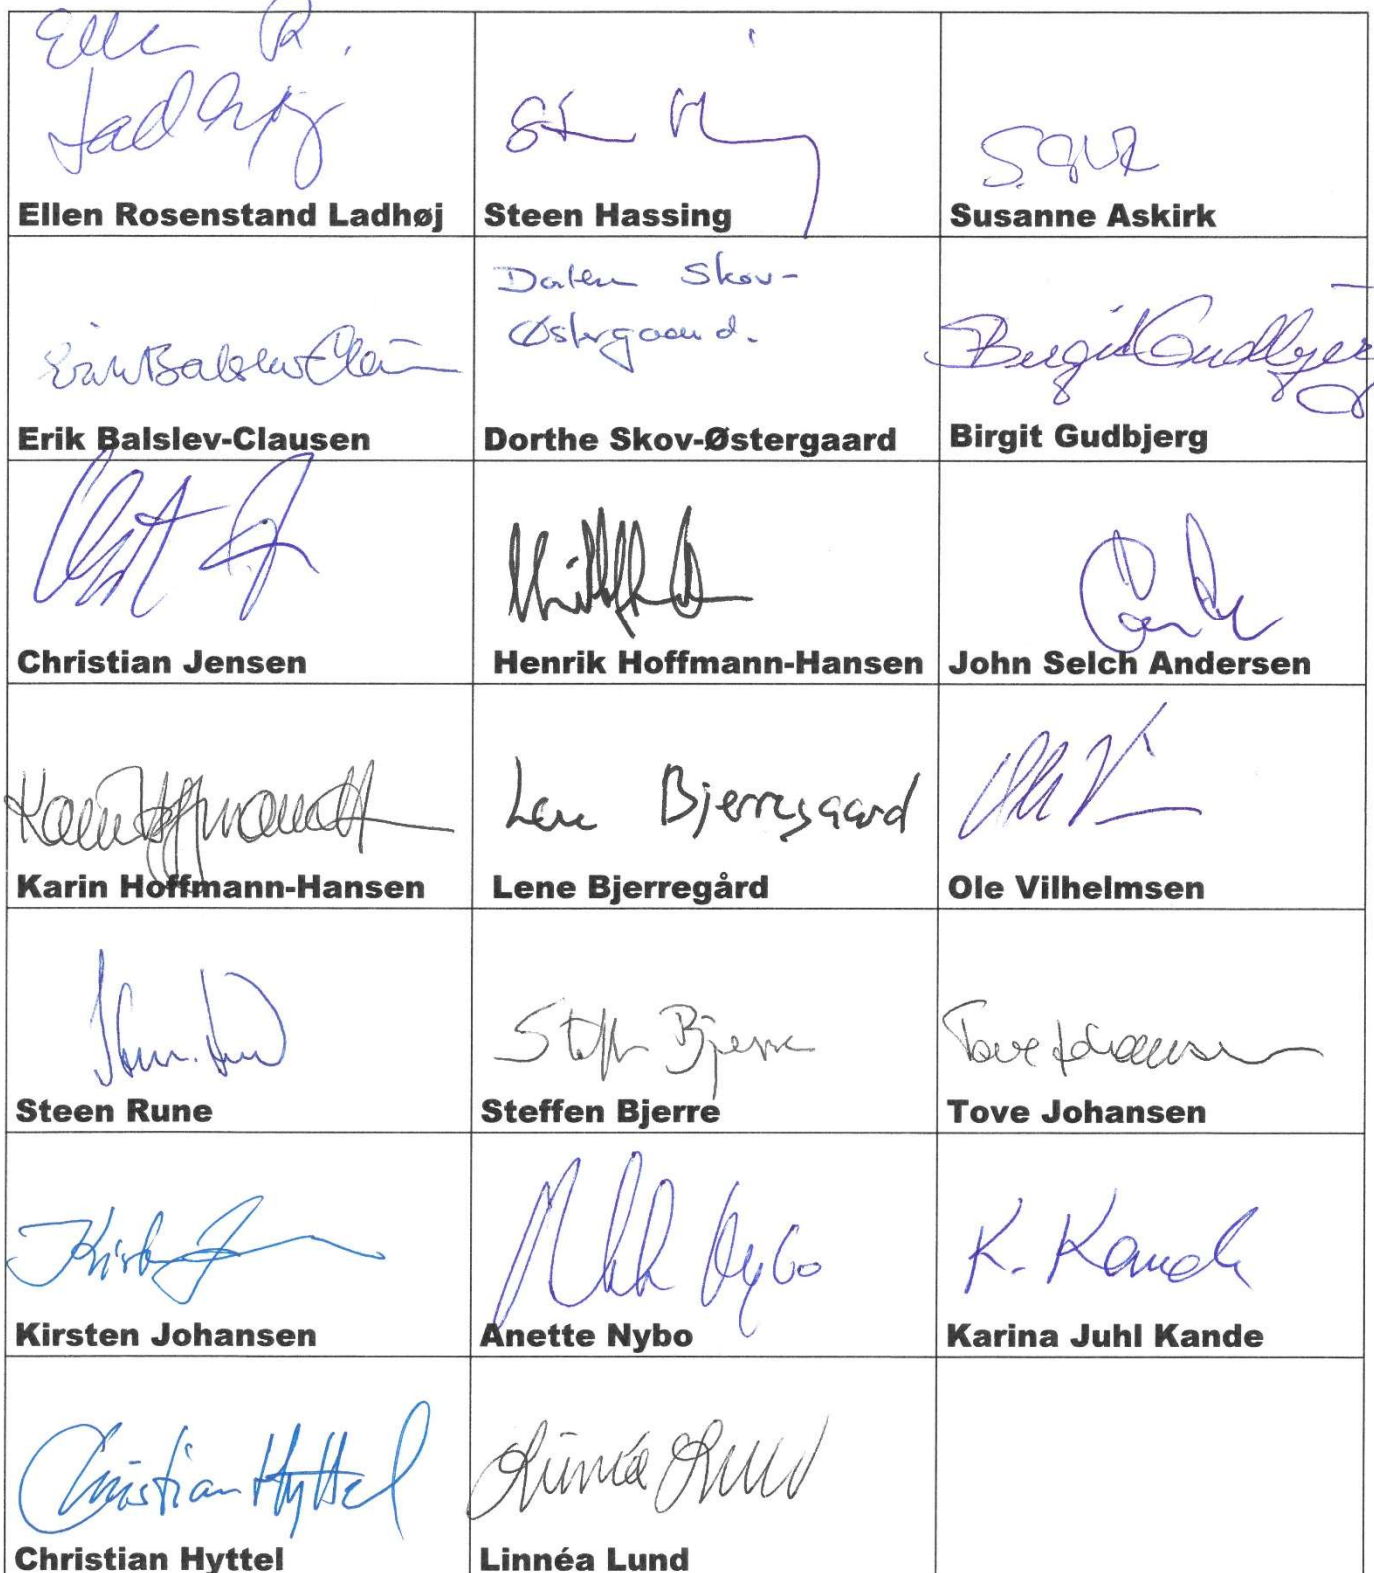 Ellen R.
Ladhøj
Ellen Rosenstand Ladhøj
Steen Hassing
Susanne Askirk
Erik Balslev-Clausen
Skov-
Østergaard.
Dorthe Skov-Østergaard
Birgit Gudbjerg
Birgit Gudbjerg
Christian Jensen
Henrik Hoffmann-Hansen
John Selch Andersen
Karin Hoffmann-Hansen
Lene Bjerregaard
Lene Bjerregård
Ole Vilhelmsen
Steen Rune
Steffen Bjerre
Steffen Bjerre
Tove Johansen
Tove Johansen
Kirsten Johansen
Nybo
Anette Nybo
K. Kande
Karina Juhl Kande
Christian Hyttel
Christian Hyttel
Linnéa Lund
Linnéa Lund